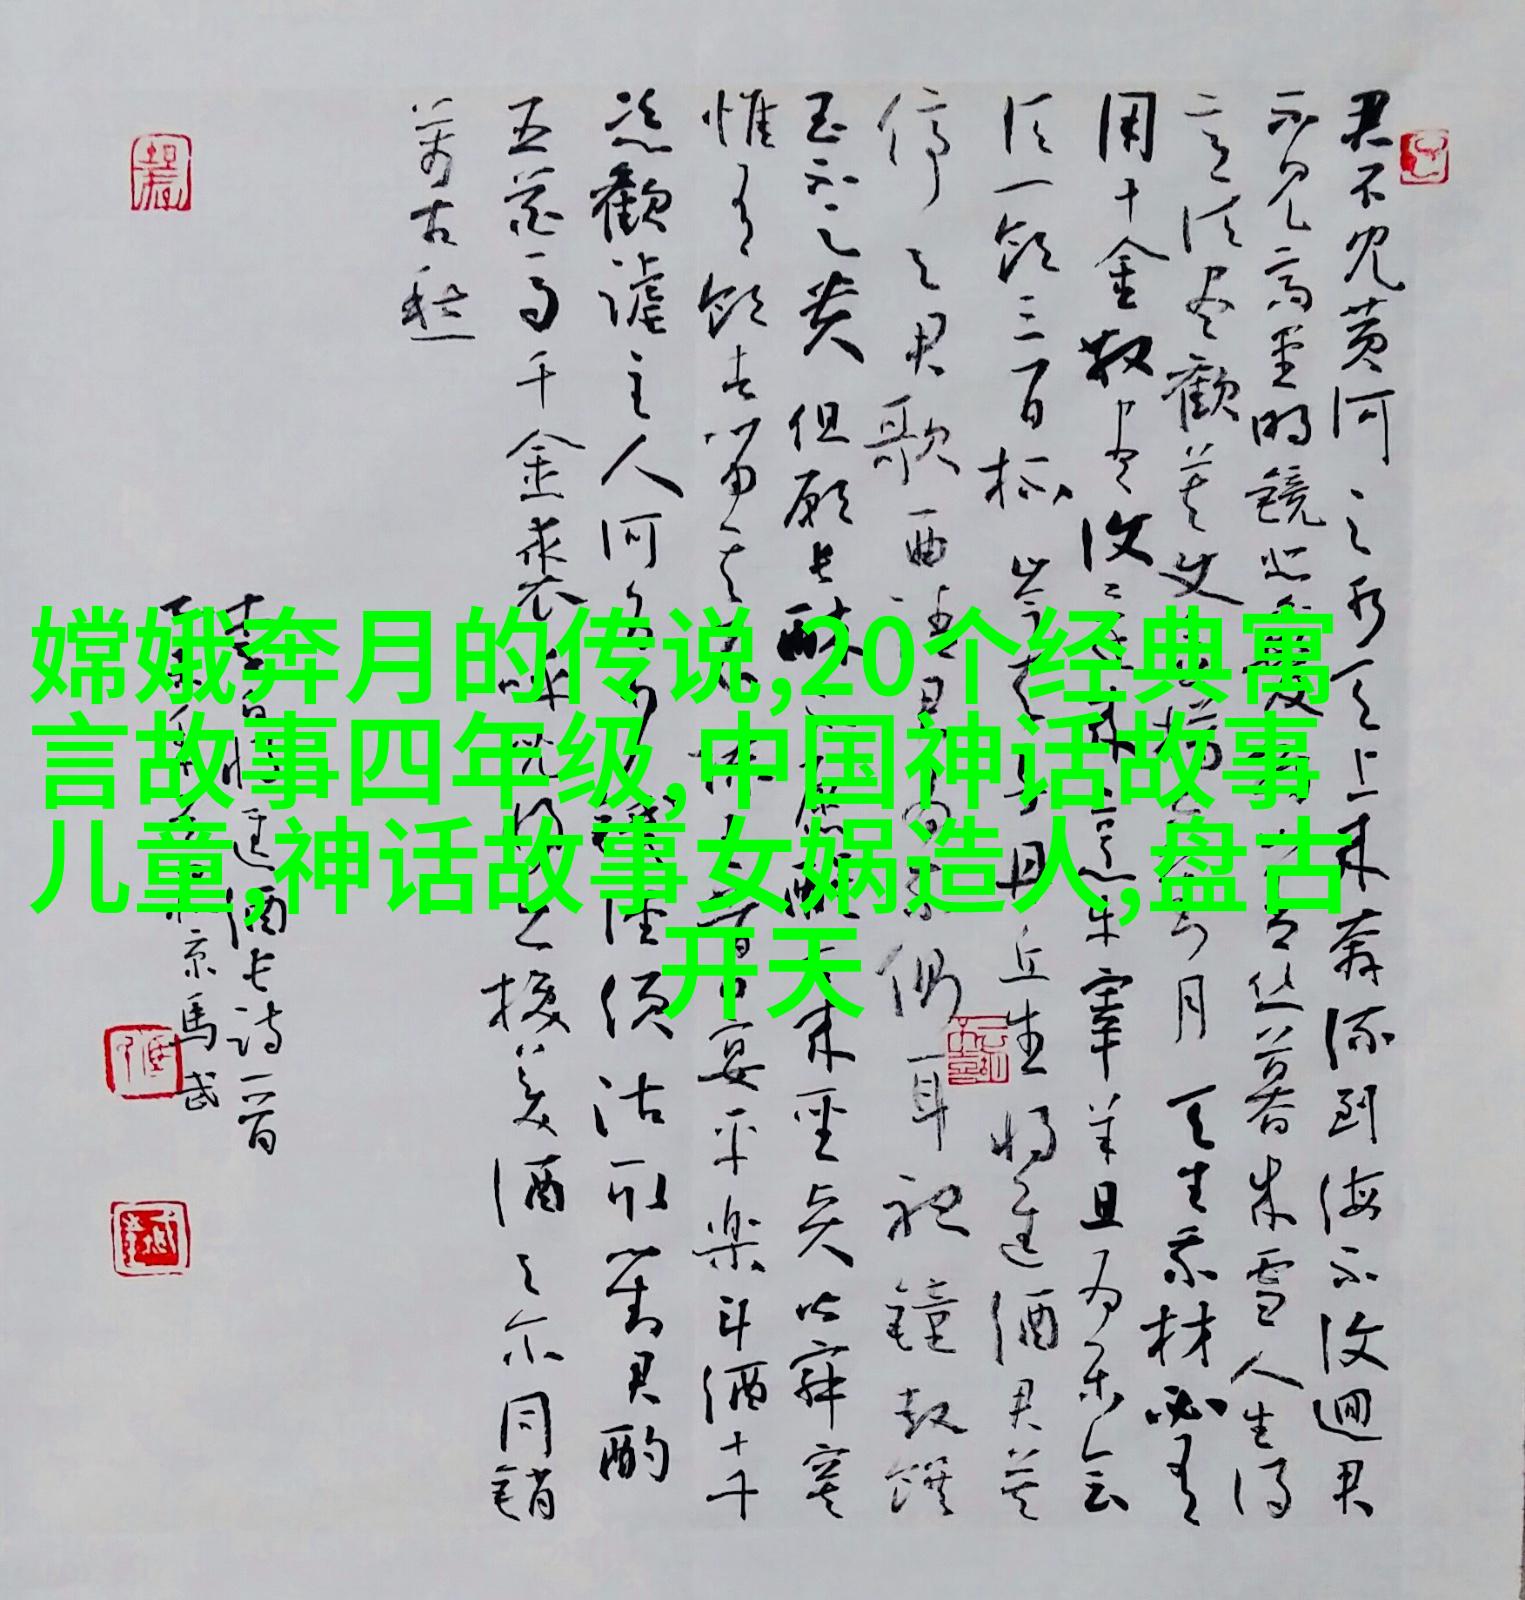 嫦娥奔月的传说,20个经典寓
言故事四年级,中国神话故事
儿童,神话故事女娲造人,盘古
开天
君不见黄河之水天上来奔流到海不復迴君
不见高堂明鏡悲白髮朝如青丝暮成雪人生得
意须尽歡莫使金樽空对月天生我材必有
用千金散尽復还来烹牛宰羊且为乐会
须一饮三百杯岑夫子丹丘生将进酒君莫
停与君歌一曲请君为我侧耳听鐘鼓馔
玉不足贵但愿长醉不愿醒古来圣贤皆寂寞
惟有饮者留其名陈王昔时宴平樂斗酒十千
恣歡謔主人何为言少钱径须沽取对君酌
五花马千金裘呼儿将出换美酒与尔同销
万古愁
李白将进酒长诗一首
京馬武